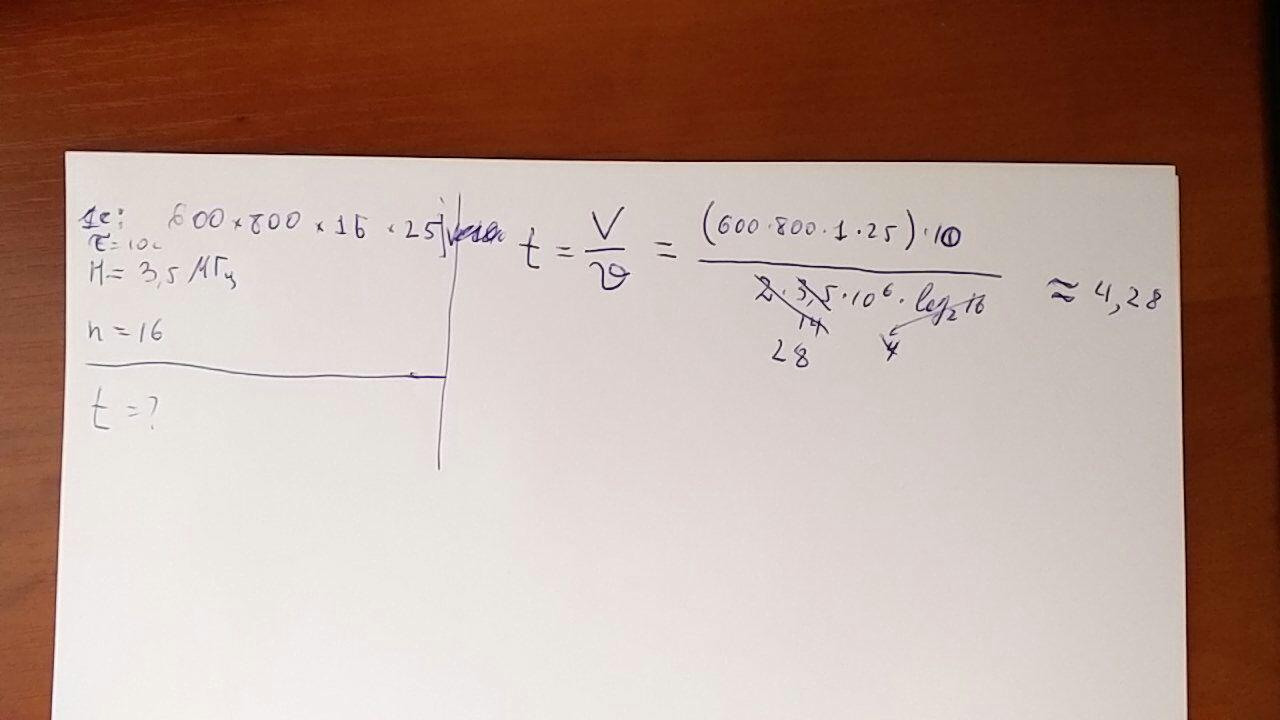 1с: 600 × 800 × 16 × 25]
τ = 10с
H = 3,5 МГц
n = 16
t = ?
t = V / υ = (600·800·1·25)·10 / 2·3,5·10⁶·log₂16 ≈ 4,28
14
28 4